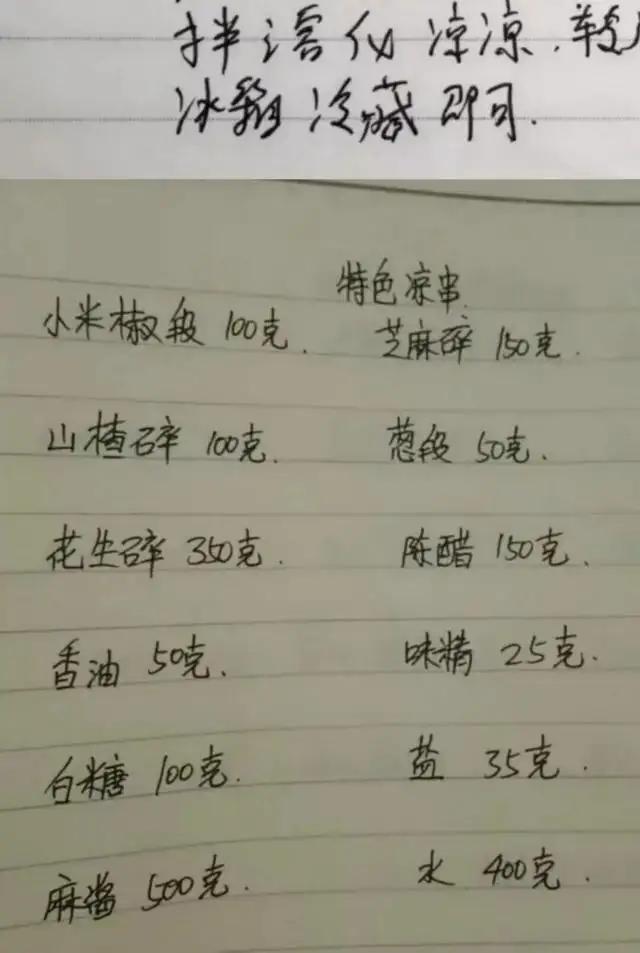 拌溶化凉凉.
冰箱冷藏即可.
特色凉串.
小米椒段 100克. 芝麻碎 150克.
山楂碎 100克. 葱段 50克.
花生碎 350克. 陈醋 150克.
香油 50克. 味精 25克.
白糖 100克. 盐 35克.
麻酱 500克. 水 400克.